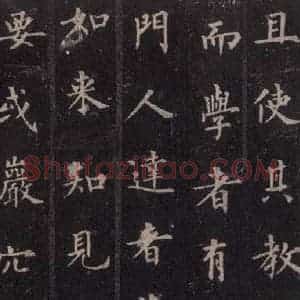 且使其教
而學者有
門人達者
如来知見
要或嚴
Shufaziliao.COM